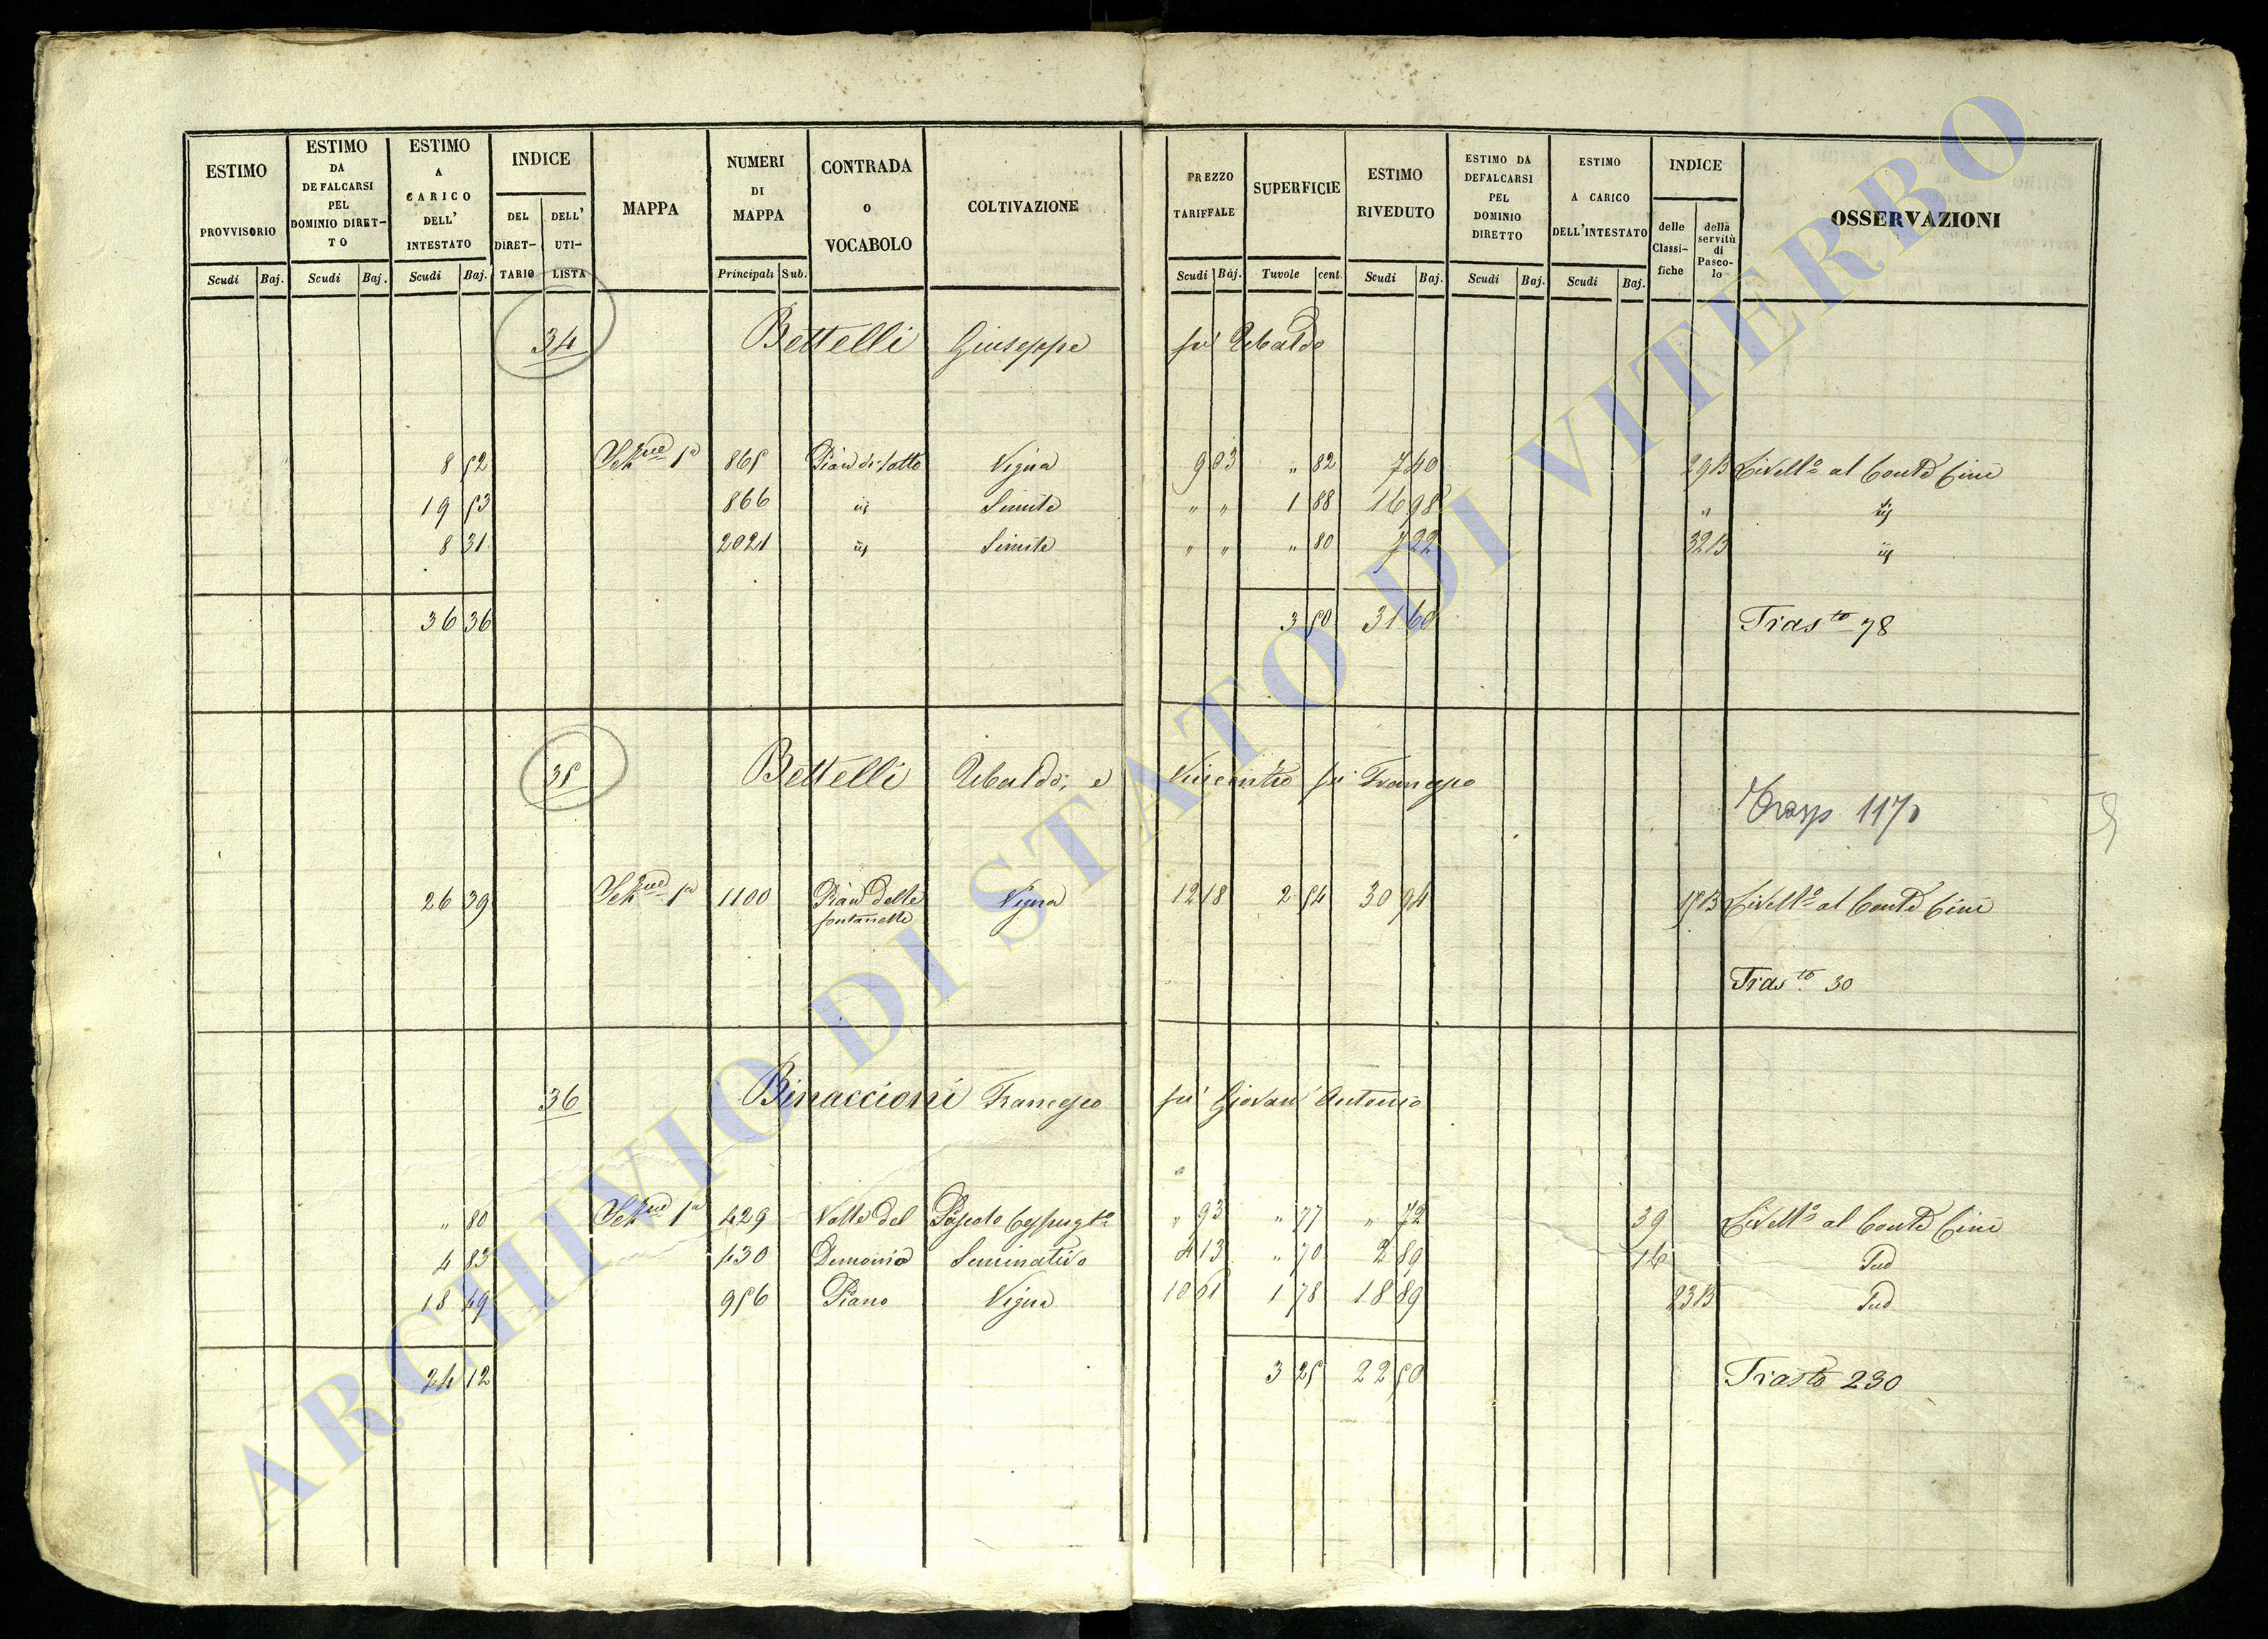 ESTIMO PROVVISORIO
ESTIMO DA DEFALCARSI PEL DOMINIO DIRET-TO
ESTIMO A CARICO DELL' INTESTATO
INDICE
DEL DIRET-TARIO
DELL' UTI-LISTA
MAPPA
NUMERI DI MAPPA
CONTRADA o VOCABOLO
COLTIVAZIONE
PREZZO TARIFFALE
SUPERFICIE
ESTIMO RIVEDUTO
ESTIMO DA DEFALCARSI PEL DOMINIO DIRETTO
ESTIMO A CARICO DELL'INTESTATO
INDICE
delle Classi-fiche
della servitù di Pasco-lo
OSSERVAZIONI
Scudi Baj. Scudi Baj. Scudi Baj. Principali Sub. Scudi Baj. Tavole cent. Scudi Baj. Scudi Baj. Scudi Baj.
34 Bettelli Giuseppe fu Ubaldo
8 52 Sezne 1a 865 Pian di Sotto Vigna 9 03 " 82 7 40 29 B Livello al Conte Cini
19 53 866 iij Simile " " 1 88 16 98 " iij
8 31 2021 iij Simile " " " 80 7 22 32 B iij
36 36 3 50 31 60 Trasto 78
35 Bettelli Ubaldo, e Vincenzo fu Francesco
Trasp 117
26 39 Sezne 1a 1100 Pian delle fontanelle Vigna 12 18 2 54 30 94 B Livello al Conte Cini
Trasto 30
36 Binaccioni Francesco fu Giovan Antonio
" 80 Sezne 1a 429 Valle del Pascolo Cespugto " 93 " 77 " 72 39 Livello al Conte Cini
4 83 430 Demonio Seminativo 4 13 " 70 2 89 16 Sud
18 49 956 Piano Vigna 10 61 1 78 18 89 23 B Sud
24 12 3 25 22 50 Trasto 230
ARCHIVIO DI STATO DI VITERBO